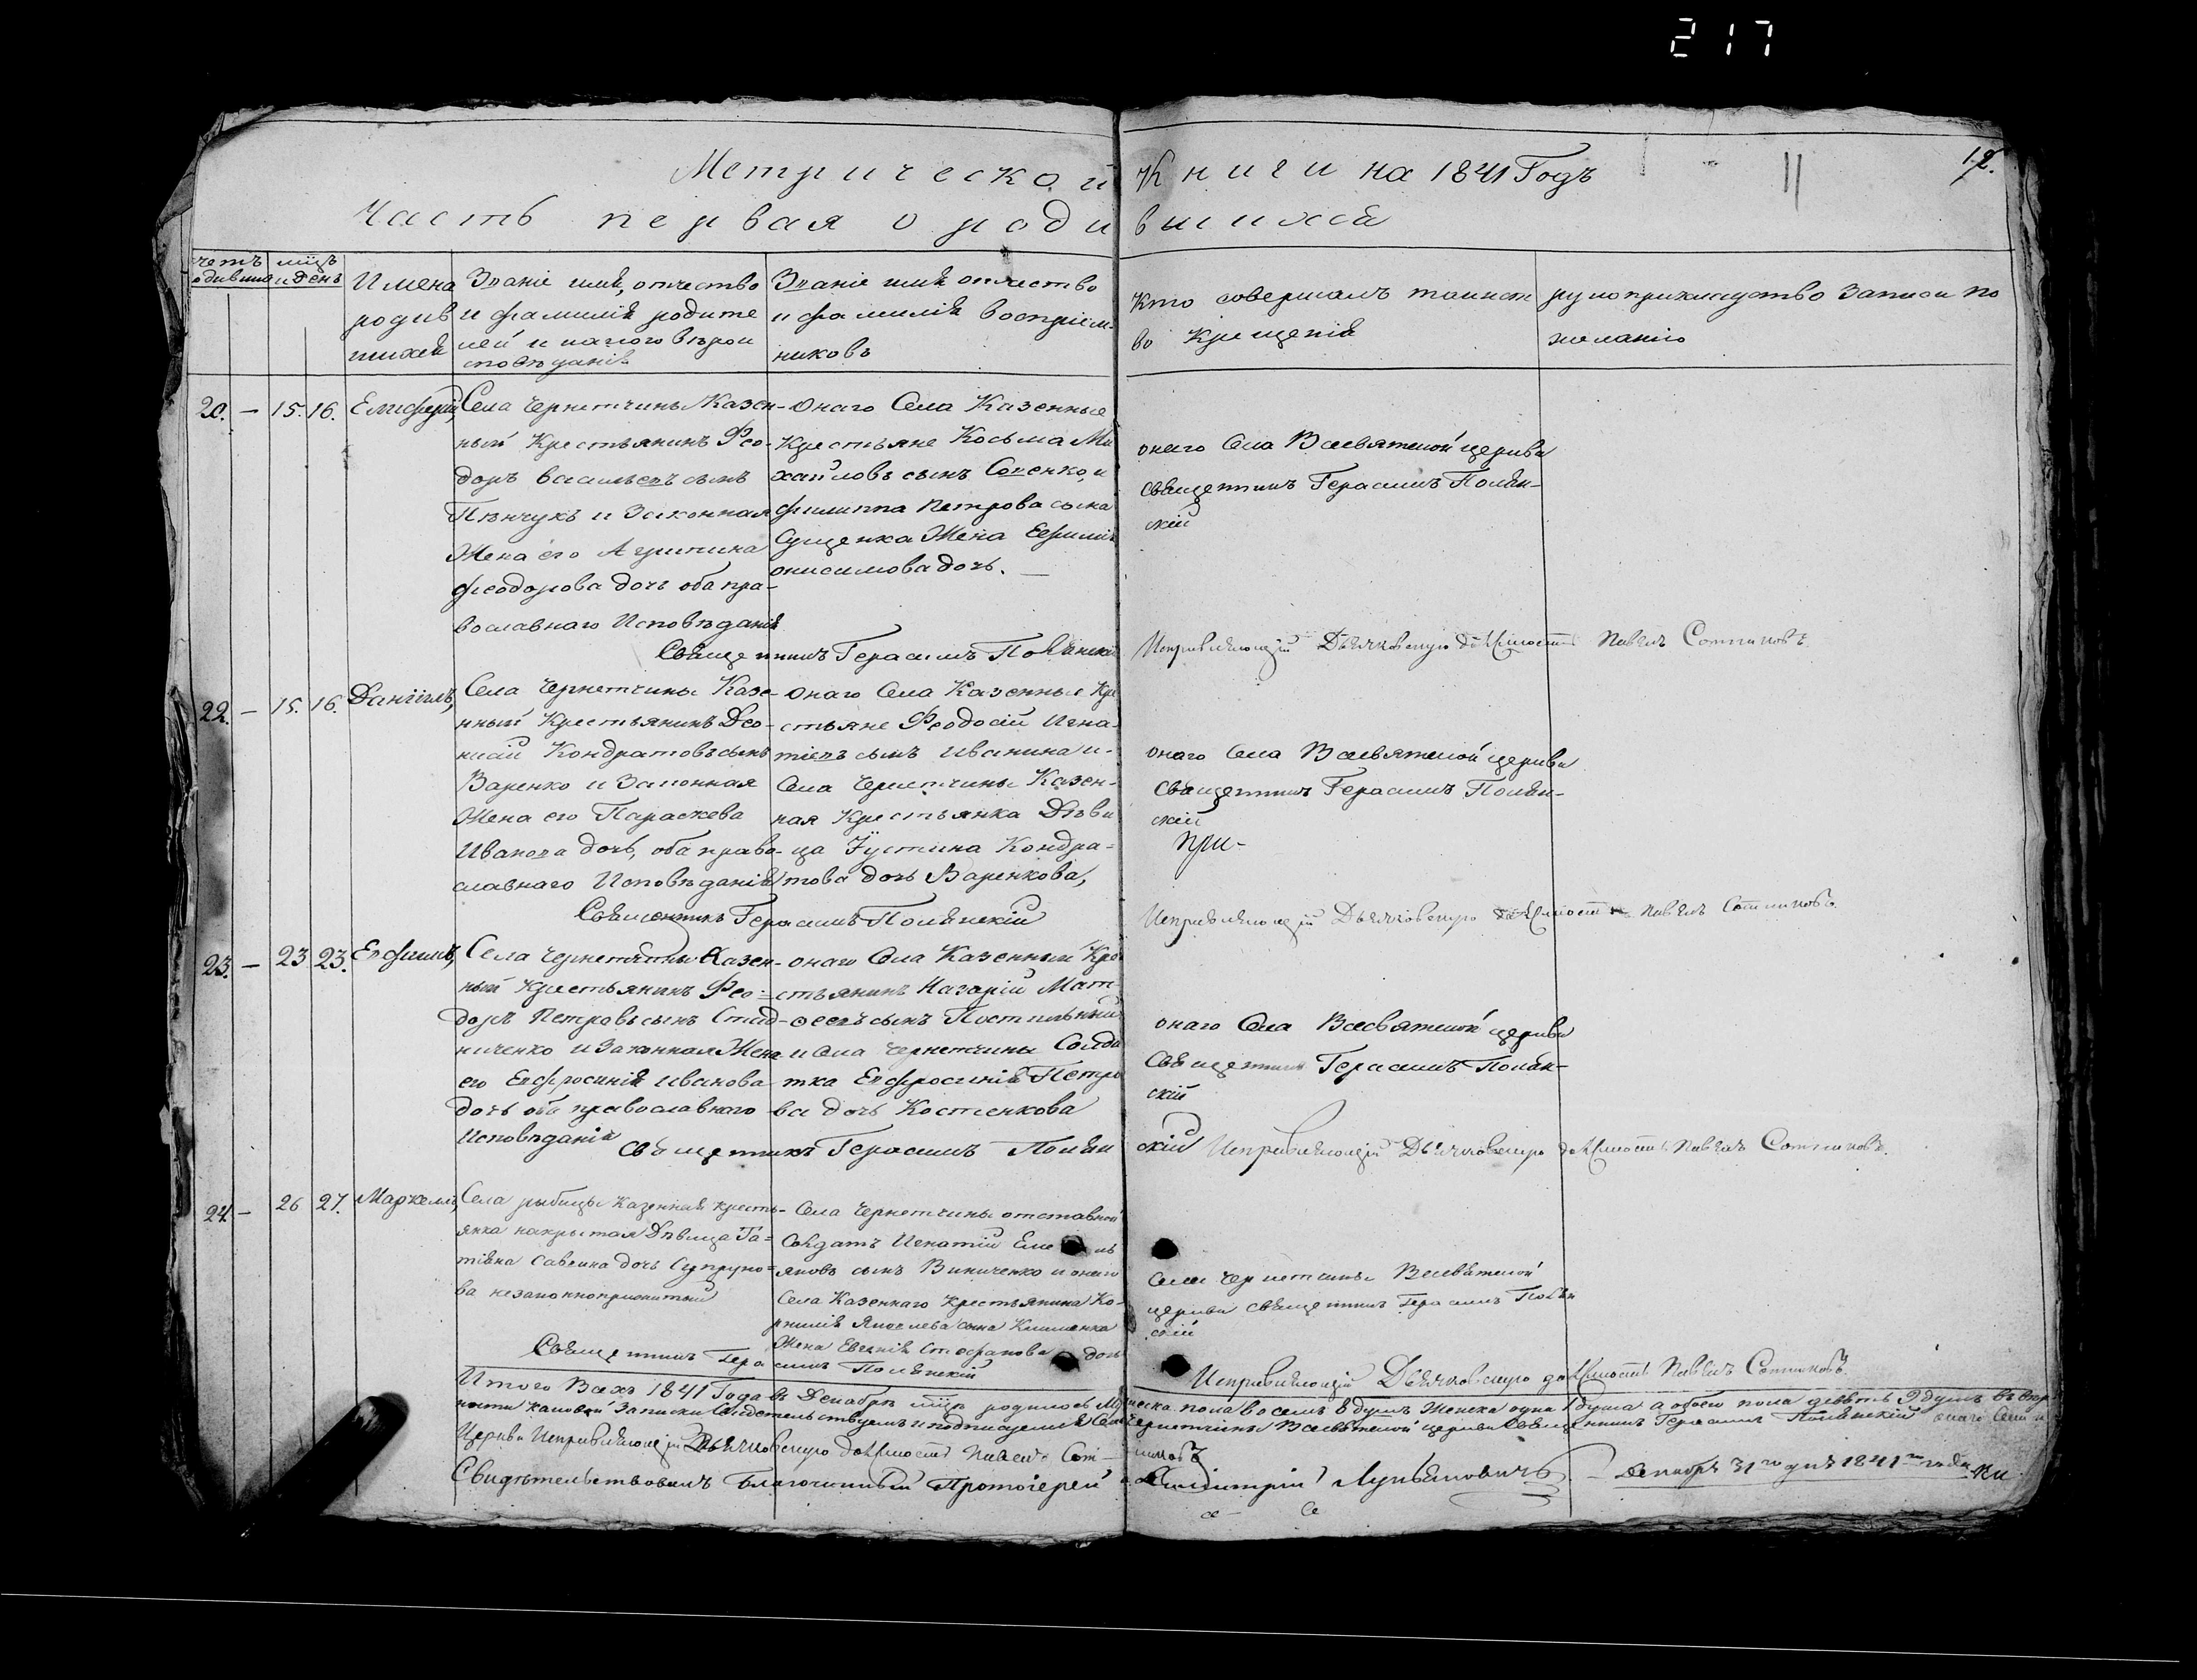 217
Метрической Книги на 1841 Годъ
12.
Часть первая о родившихся
четъ родивши
мцъ и день
Имена родившихся
Званіе имя, отчество и фамилія родителей и какого вѣроисповѣданія
Званіе имя отчество и фамилія воспріемниковъ
Кто совершалъ таинство Крещенія
рукоприкладство Записи по желанію
20. — 15. 16.
Села Чернетчины Казен-
ный Крестьянинъ Фео-
доръ Васильевъ сынъ
и Законная
Жена его Агрипина
феодорова дочь оба пра-
вославнаго Исповѣданія
Онаго Села Казенные
Крестьяне Косьма Ми
хайловъ сынъ Сопенко, и
филиппа Петрова сына
Сущенка Жена Евфимія
онисимова дочь. —
онаго Села Всесвятской церкви
священникъ Герасимъ Полян-
скій
Священникъ Герасимъ Полянскій
Исправляющій Дьячковскую должность Павелъ Сотниковъ.
22. — 15. 16. Даніилъ,
Села Чернетчины Казе-
нный Крестьянинъ Део-
нисій Кондратовъ сынъ
Варенко и Законная
Жена его Параскева
Иванова дочь, оба право-
славнаго Исповѣданія
онаго Села Казенные Кре
стьяне Феодосій Игна-
тіевъ сынъ Иванина и-
Села Чернетчины Казен-
ная Крестьянка Дѣви
ца Іустина Кондра-
това дочь Варенкова,
онаго Села Всесвятской церкви
священникъ Герасимъ Полян-
скій
при-
Священникъ Герасимъ Полянскій
Исправляющій Дьячковскую должность Павелъ Сотниковъ.
23. — 23 23. Евфимъ,
Села Чернетчины Казен-
ный Крестьянинъ Фео-
доръ Петровъ сынъ
и Законная Жена
его Евфросинія Иванова
дочь оба православнаго
Исповѣданія
онаго Села Казенный Кре
стьянинъ Назарій Мат-
феевъ сынъ Постильный
и Села Чернетчины Солда
тка Евфросинія Петро
ва дочь Костенкова
онаго Села Всесвятской церкви
Священникъ Герасимъ Полян-
скій
Священникъ Герасимъ Полянскій
Исправляющій Дьячковскую должность Павелъ Сотниковъ.
24. — 26 27. Маркелъ,
Села рыбицы Казенная кресть-
янка накрытая Дѣвица Та-
тіяна Савеина дочь Супруно-
ва незаконноприжитый
Села Чернетчины отставной
Солдатъ Игнатій Емель
яновъ сынъ Виниченко и онаго
Села Казеннаго Крестьянина Ко-
рнилія сына Клименка
Жена Евгенія Стефанова дочь
Села Чернетчины Всесвятской
церкви священникъ Герасимъ Полян
скій
Священникъ Герасимъ Полянскій
Исправляющій Дьячковскую должность Павелъ Сотниковъ.
Итого Всехъ 1841 Года въ Декабрѣ мцѣ родилось Мужеска пола восемь 8 душъ Женска одна 1 душа а обоего пола девять 9 душъ въ вѣр
ности каковой Записки Свидетельствуемъ и подписуемся Села Чернетчины Всесвятской церкви Священникъ Герасимъ Полянскій онаго Села и
Церкви Исправляющій Дьячковскую должность Павелъ Сот-
никовъ
Свидѣтельствовалъ Благочинный Протоіерей Димитрій Лукьяновичъ. — Декабря 31го дня 1841го года